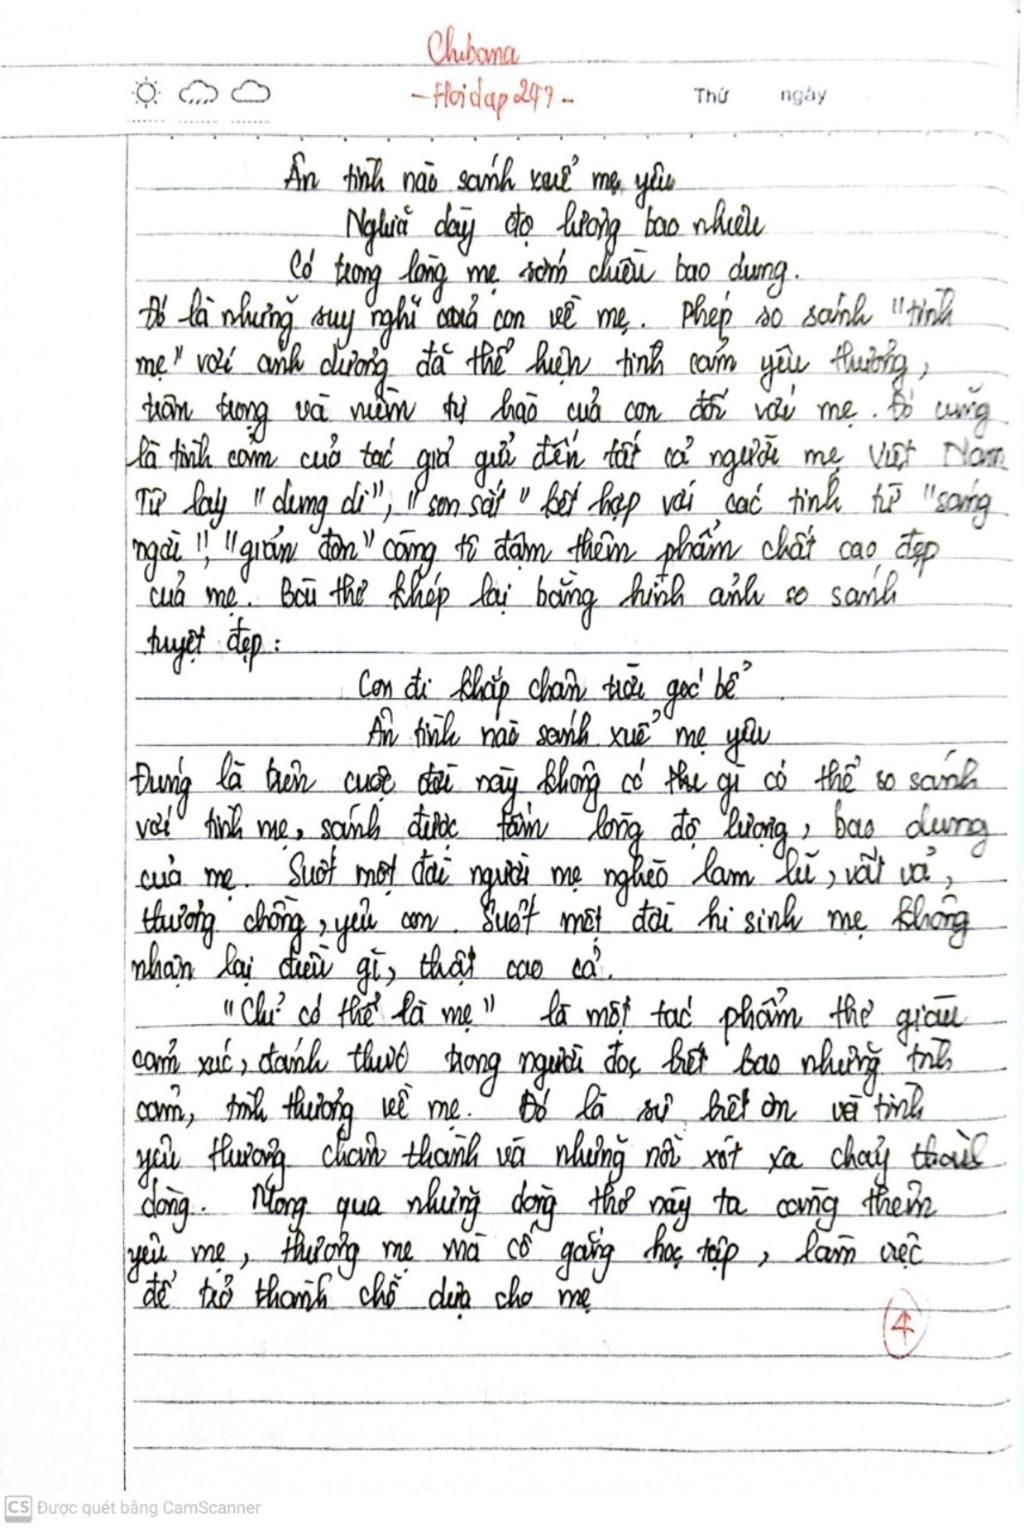 Chubana
- Hoidap247 -
Thứ ngày
Ân tình nào sánh xuể mẹ yêu
Nghĩa dày độ lượng bao nhiêu
Có trong lòng mẹ sớm chiều bao dung.
Đó là những suy nghĩ của con về mẹ. Phép so sánh "tình
mẹ" với ánh dương đã thể hiện tình cảm yêu thương,
trân trọng và niềm tự hào của con đối với mẹ. Đó cũng
là tình cảm của tác giả gửi đến tất cả người mẹ Việt Nam
Từ láy "dung dị", "son sắt" kết hợp với các tính từ "sáng
ngời", "giản đơn" càng tô đậm thêm phẩm chất cao đẹp
của mẹ. Bài thơ khép lại bằng hình ảnh so sánh
tuyệt đẹp:
Con đi khắp chân trời góc bể
Ân tình nào sánh xuể mẹ yêu
Đúng là trên cuộc đời này không có thứ gì có thể so sánh
với tình mẹ, sánh được tấm lòng độ lượng, bao dung
của mẹ. Suốt một đời người mẹ nghèo lam lũ, vất vả,
thương chồng, yêu con. Suốt một đời hi sinh mẹ không
nhận lại điều gì, thật cao cả.
"Chỉ có thể là mẹ" là một tác phẩm thơ giàu
cảm xúc, đánh thức trong người đọc biết bao những tình
cảm, tình thương về mẹ. Đó là sự biết ơn và tình
yêu thương chân thành và những nỗi xót xa chảy thành
dòng. Mong qua những dòng thơ này ta càng thêm
yêu mẹ, thương mẹ mà cố gắng học tập, làm việc
để trở thành chỗ dựa cho mẹ
4
CS Được quét bằng CamScanner